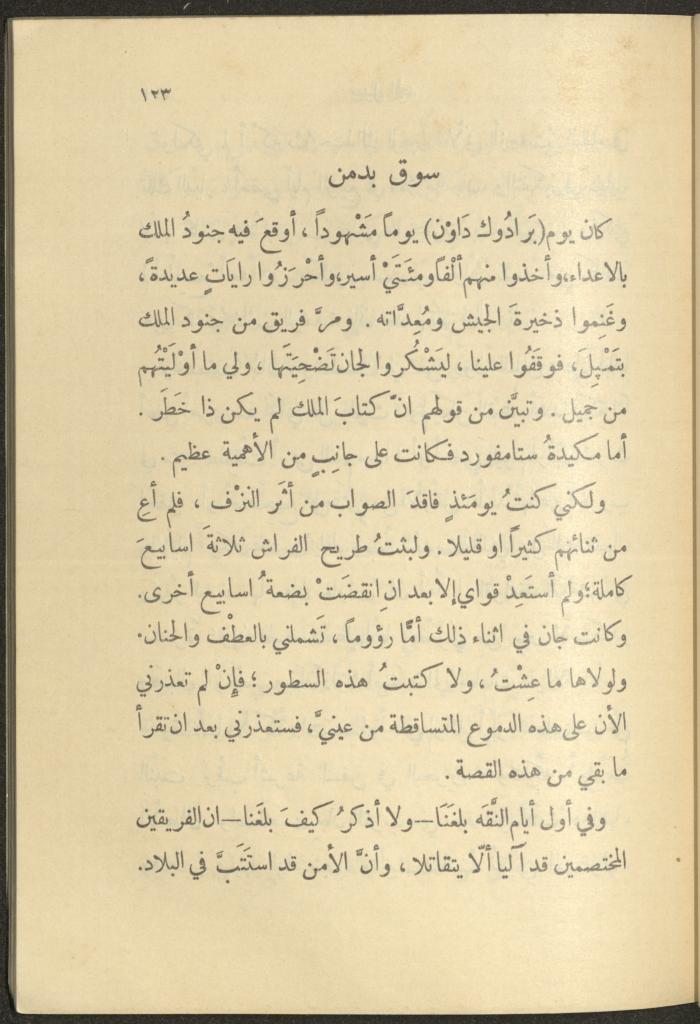 ١٢٣
سوق بدمن
كان يوم (بَرادُوك دَاوْن) يوماً مَشْهوداً ، أوقعَ فيه جنودُ الملك
بالاعداء،وأخذوا منهم ألْفاً ومئَتَيْ أسير،وأحْرَزُوا راياتٍ عديدةً،
وغَنِموا ذخيرةَ الجيش ومُعِدَّاته . ومرَّ فريق من جنود الملك
بتَمْپِل، فوقَفُوا علينا ، ليَشْكُروا لجان تَضْحِيَتَها ، ولي ما أوْلَيْتُهم
من جميل . وتبيَّن من قولهم انّ كتابَ الملك لم يكن ذا خَطَر .
أما مكيدةُ ستامفورد فكانت على جانِبٍ من الأهمية عظيم .
ولكني كنتُ يومَئذٍ فاقدَ الصواب من أثَر النزْف ، فلم أعِ
من ثنائهم كثيراً او قليلا . ولبثتُ طريح الفراش ثلاثةَ اسابيعَ
كاملة؛ولم أستَعِدْ قواي إلا بعد ان انقضَتْ بضعةُ اسابيع أخرى.
وكانت جان في اثناء ذلك أمّاً رؤوماً ، تَشملني بالعطْف والحنان.
ولولاها ما عِشْتُ ، ولا كتبتُ هذه السطور ؛ فإنْ لم تعذرني
الأن على هذه الدموع المتساقطة من عينيَّ، فستعذرني بعد ان تقرأ
ما بقي من هذه القصة .
وفي أول أيام النَّقَه بلغَنَا—ولا أذكرُ كيفَ بلغَنا—ان الفريقين
المختصمين قد آليا ألّا يتقاتلا ، وأنَّ الأمن قد استَتَبَّ في البلاد.